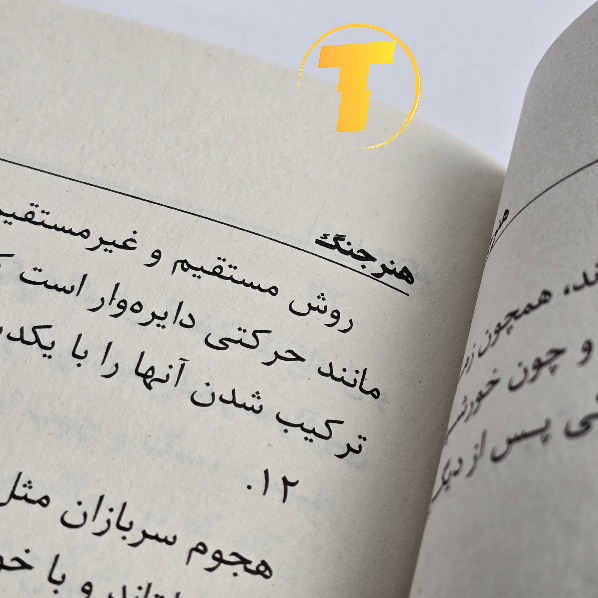 T
هنر جنگ
روش مستقیم و غیرمستقیم
مانند حرکتی دایره‌وار است
ترکیب شدن آنها را با
۱۲.
هجوم سربازان مثل
و با
همچون
و چون
پس از